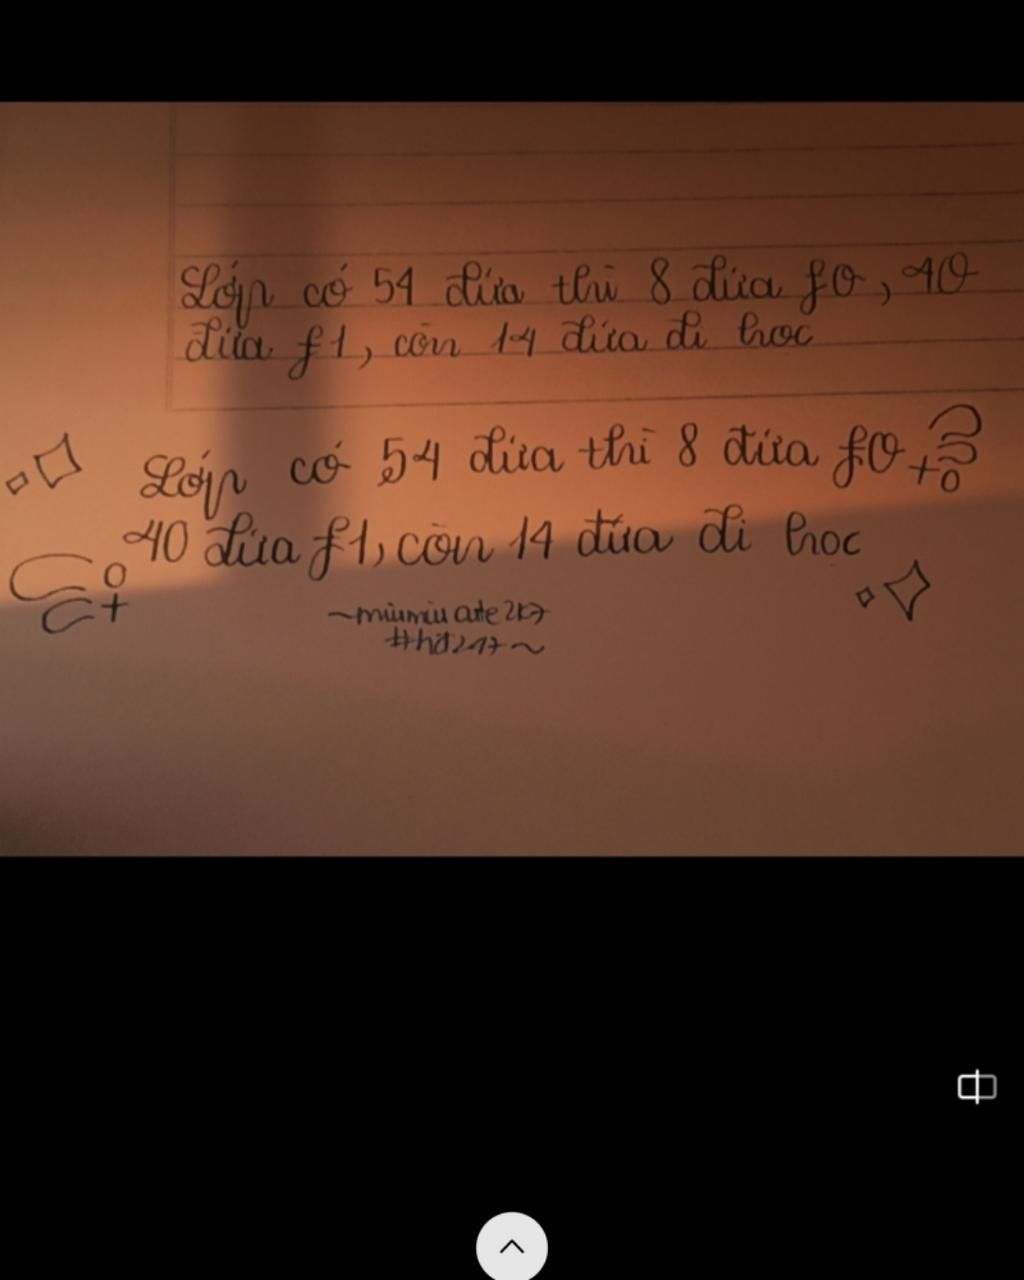 Lớp có 54 đứa thì 8 đứa f0, 40
đứa f1, còn 14 đứa đi học
Lớp có 54 đứa thì 8 đứa f0
40 đứa f1, còn 14 đứa đi học
~miumiu arte 2k7
#hd247~